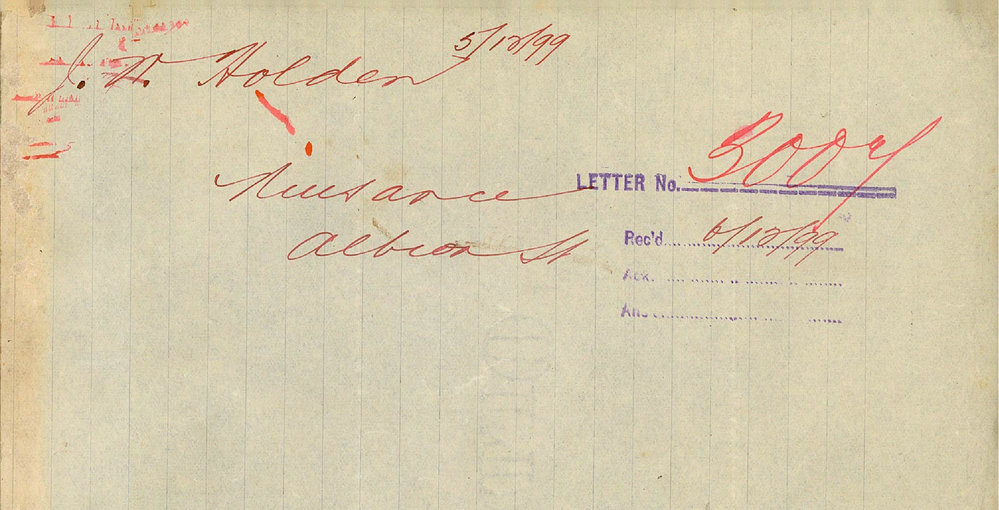 J. W. Holden 5/12/99
Nuisance
Albion St
LETTER No. 3007
Rec'd 6/12/99
Ack.
Ans